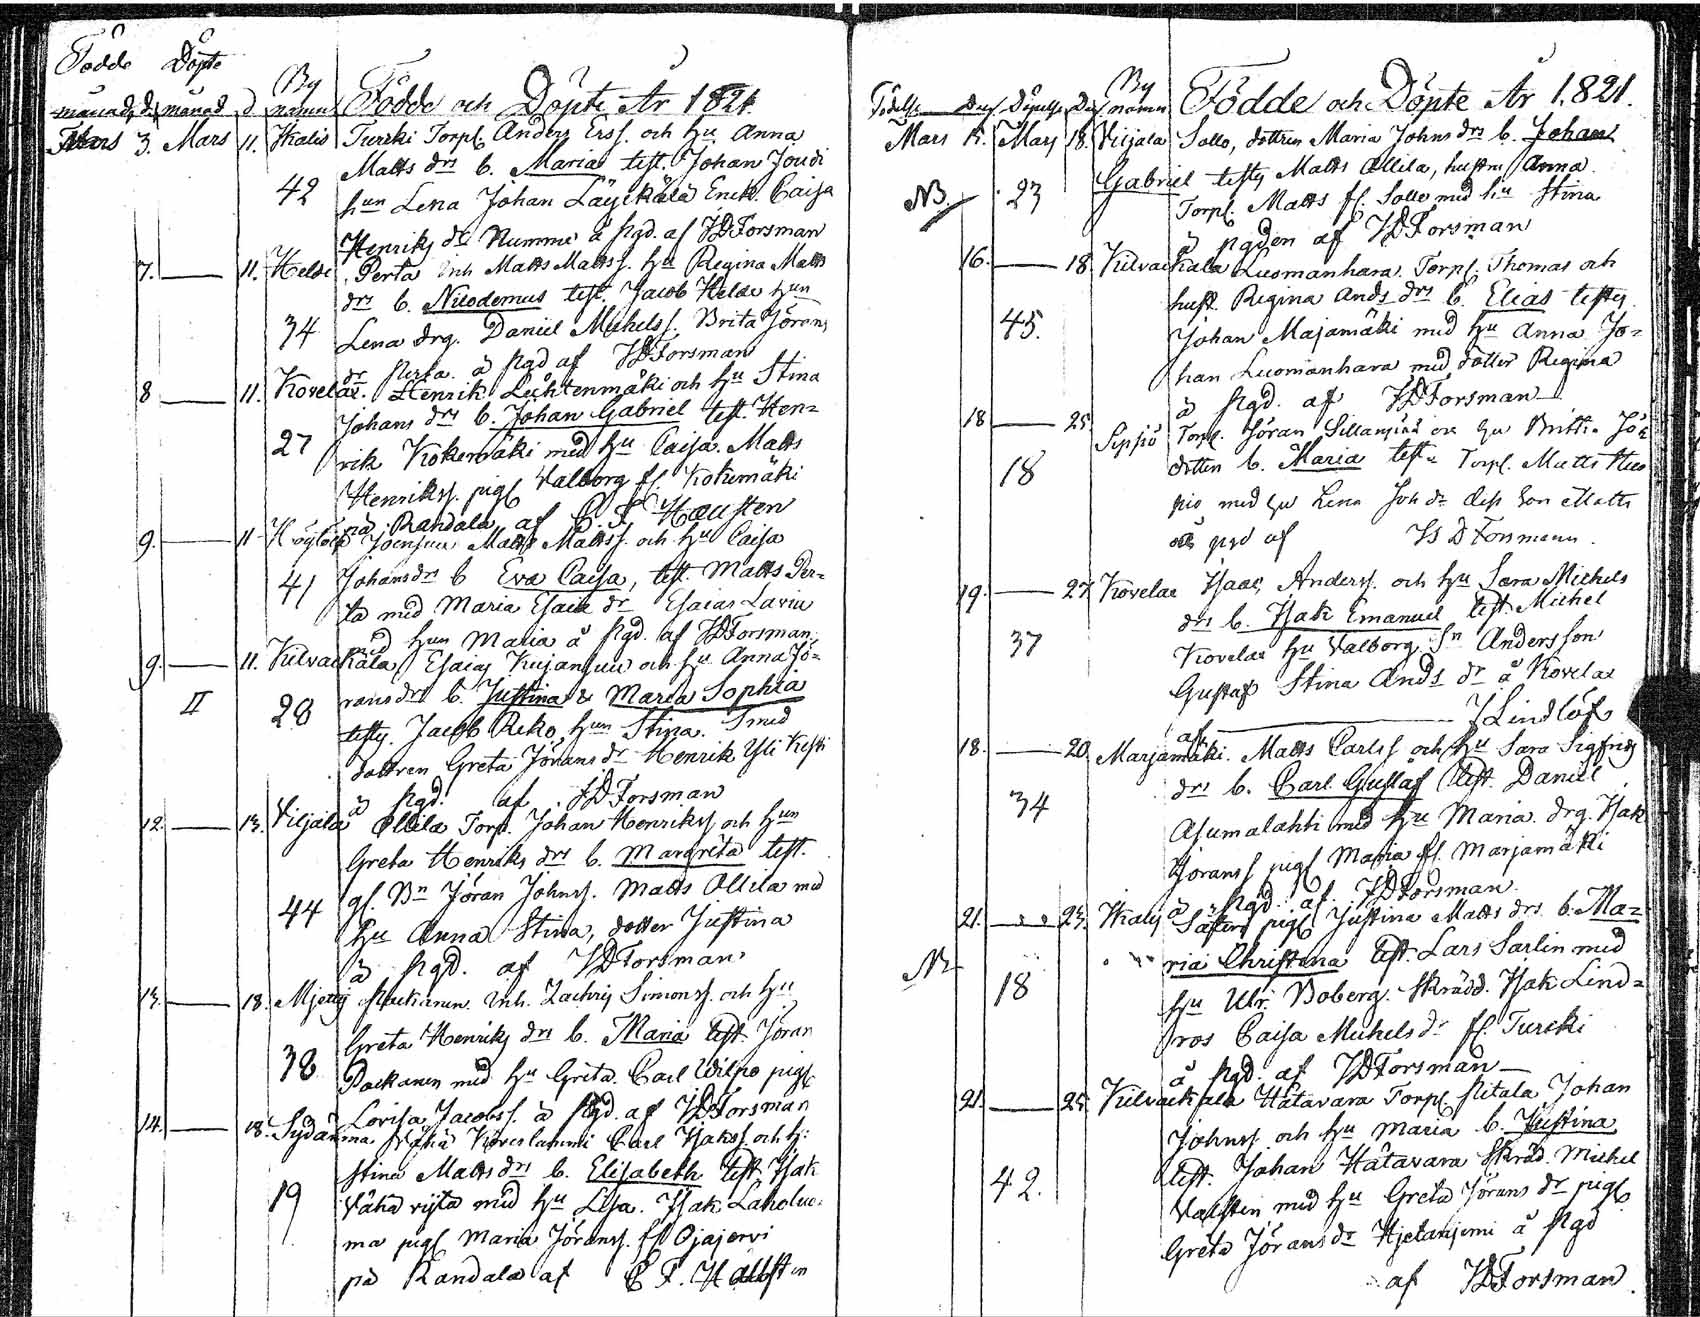 Födde Döpte
månad d. månad d By namn Födde och Döpte År 1821
Mars 3. Mars 11. Ikalis Turcki Torp. Anders Erss. och hu Anna
Matts drs b. Maria test. Johan Joudi
42 hun Lena Johan Läyckälä Enck. Caisa
Henriks dr Numme å Pgd. af IDForsman
7. — 11. Helde Perta Inh Matts Matts s. hu Regina Matts
drs b. Nicodemus test. Jacob Helde hun
34 Lena drg. Daniel Michelss. Brita Jörans
dr Perta. å Pgd af IDForsman
8 — 11. Kovelax. Henrik Lechtenmäki och hu Stina
Johans drs b. Johan Gabriel test. Hen=
27 rik Kokemäki med hu Caisa. Matts
Henrikss. pig Valborg Kokemäki
på Randala af C F Hællsten
9. — 11 Matts Mattss. och hu Caisa
41 Johansdrs b Eva Caisa, test. Matts Per=
ta med Maria Esaiæ dr Esaias Laviu
med hun Maria å Pgd. af IDForsman.
9. — 11. Kilvackala Esaias Kujanpuu och hu Anna Jö=
II 28 ransdrs b. Justina & Maria Sophia
testes. Jacob Reko, hun Stina. Smed
dottren Greta Jöransdr Henrik Yli Kesti
å Pgd. af IDForsman
12. — 13. Viljala Ollila Torp. Johan Henrikss och hun
Greta Henriks drs b. Margreta test.
44 gl. Bn Jöran Johnss. Matts Ollila med
hu Anna Stina, dotter Justina
å Pgd. af IDForsman
13. — 18. Mjettis Packanen. Inh. Zachris Simonss. och hu
Greta Henriks drs b. Maria test. Jöran
38 Packanen med hu Greta. Carl Wilpo pig.
Lovisa Jacobss. å Pgd. af IDForsman
14. — 18. Sydänma Vähä Koveslammi Carl Isakss. och h:
Stina Mattsdrs b. Elisabeth test. Isak
19 Vähä rijta med hu Lisa. Isak Laholuo=
ma pig Maria Jöranss. Ojajervi
på Randala af C F. Hællsten
Födelse Dag Döpelse Dag By namn Födde och Döpte År 1821.
Mars 15. Mars 18. Viljala Sallo, dottren Maria Johns drs b. Johan
NB 23 Gabriel testes Matts Ollila, hustru Anna
Torp. Matts Sallo med hu Stina
å Pgden af IDForsman
16. — 18. Kilvackala Luomanhara. Torp. Thomas och
hust. Regina Ands drs b. Elias testes
45. Johan Majamäki med hu Anna Jo=
han Luomanhara med dotter Regina
å Pgd. af IDForsman
18 — 25. Sipsiö Torp. Jöran Sillanpää och hu Britta Jö=
18 dotten b. Maria test. Torp. Matts
pio med hu Lena Joh dr dess son Matts
å pgd af IsDForsmann.
19. — 27 Kovelax Isaac Anderss. och hu Sara Michels
drs b. Isak Emanuel test. Michel
37 Kovelax hu Valborg. Sn Andersson
Gustaf Stina Ands dr å Kovelax
af — JLindlöf
18. — 20. Marjamäki. Matts Carlss och hu Sara Sigfrids
drs b. Carl Gustaf test. Daniel
34 Asumalahti med hu Maria. drg. Isak
Jöranss pig Maria Marjamäki
å Pgd. af. IDForsman.
21. — 23. Ikalis Säfter pig Justina Matts drs b. Ma=
NB ria Christina test. Lars Sarlin med
18 hu Ulr. Boberg. Skrädd. Isak Lind=
ros Caisa Michelsdr Turcki
å Pgd. af IDForsman —
21. — 25. Kilvackala Hatavara Torp. Pitala Johan
Johnss och hu Maria b. Justina
42. test. Johan Hatavara Skräd. Michel
Valsten med hu Greta Jörans dr pig
Greta Jörans dr Hjetaniemi å Pgd
af IDForsman.